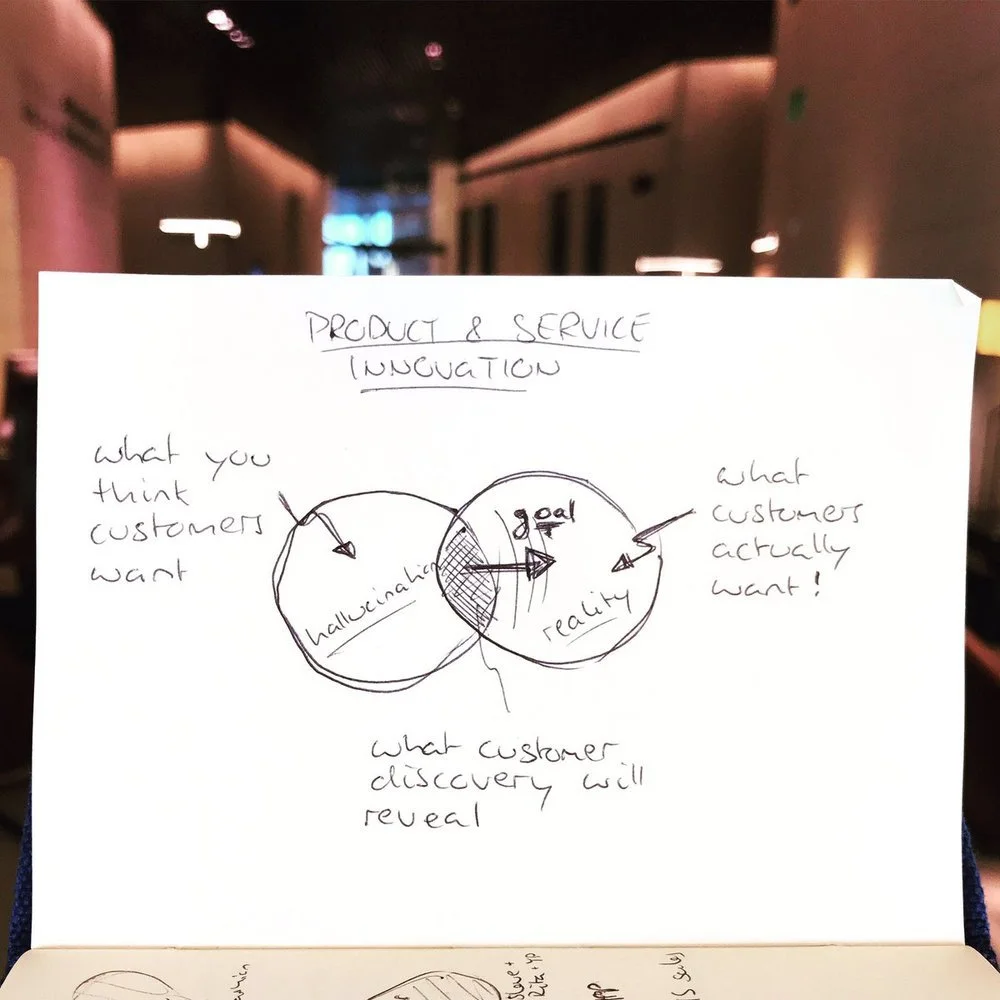 PRODUCT & SERVICE
INNOVATION
what you
think
customers
want
hallucination
goal
reality
what
customers
actually
want!
what customer
discovery will
reveal